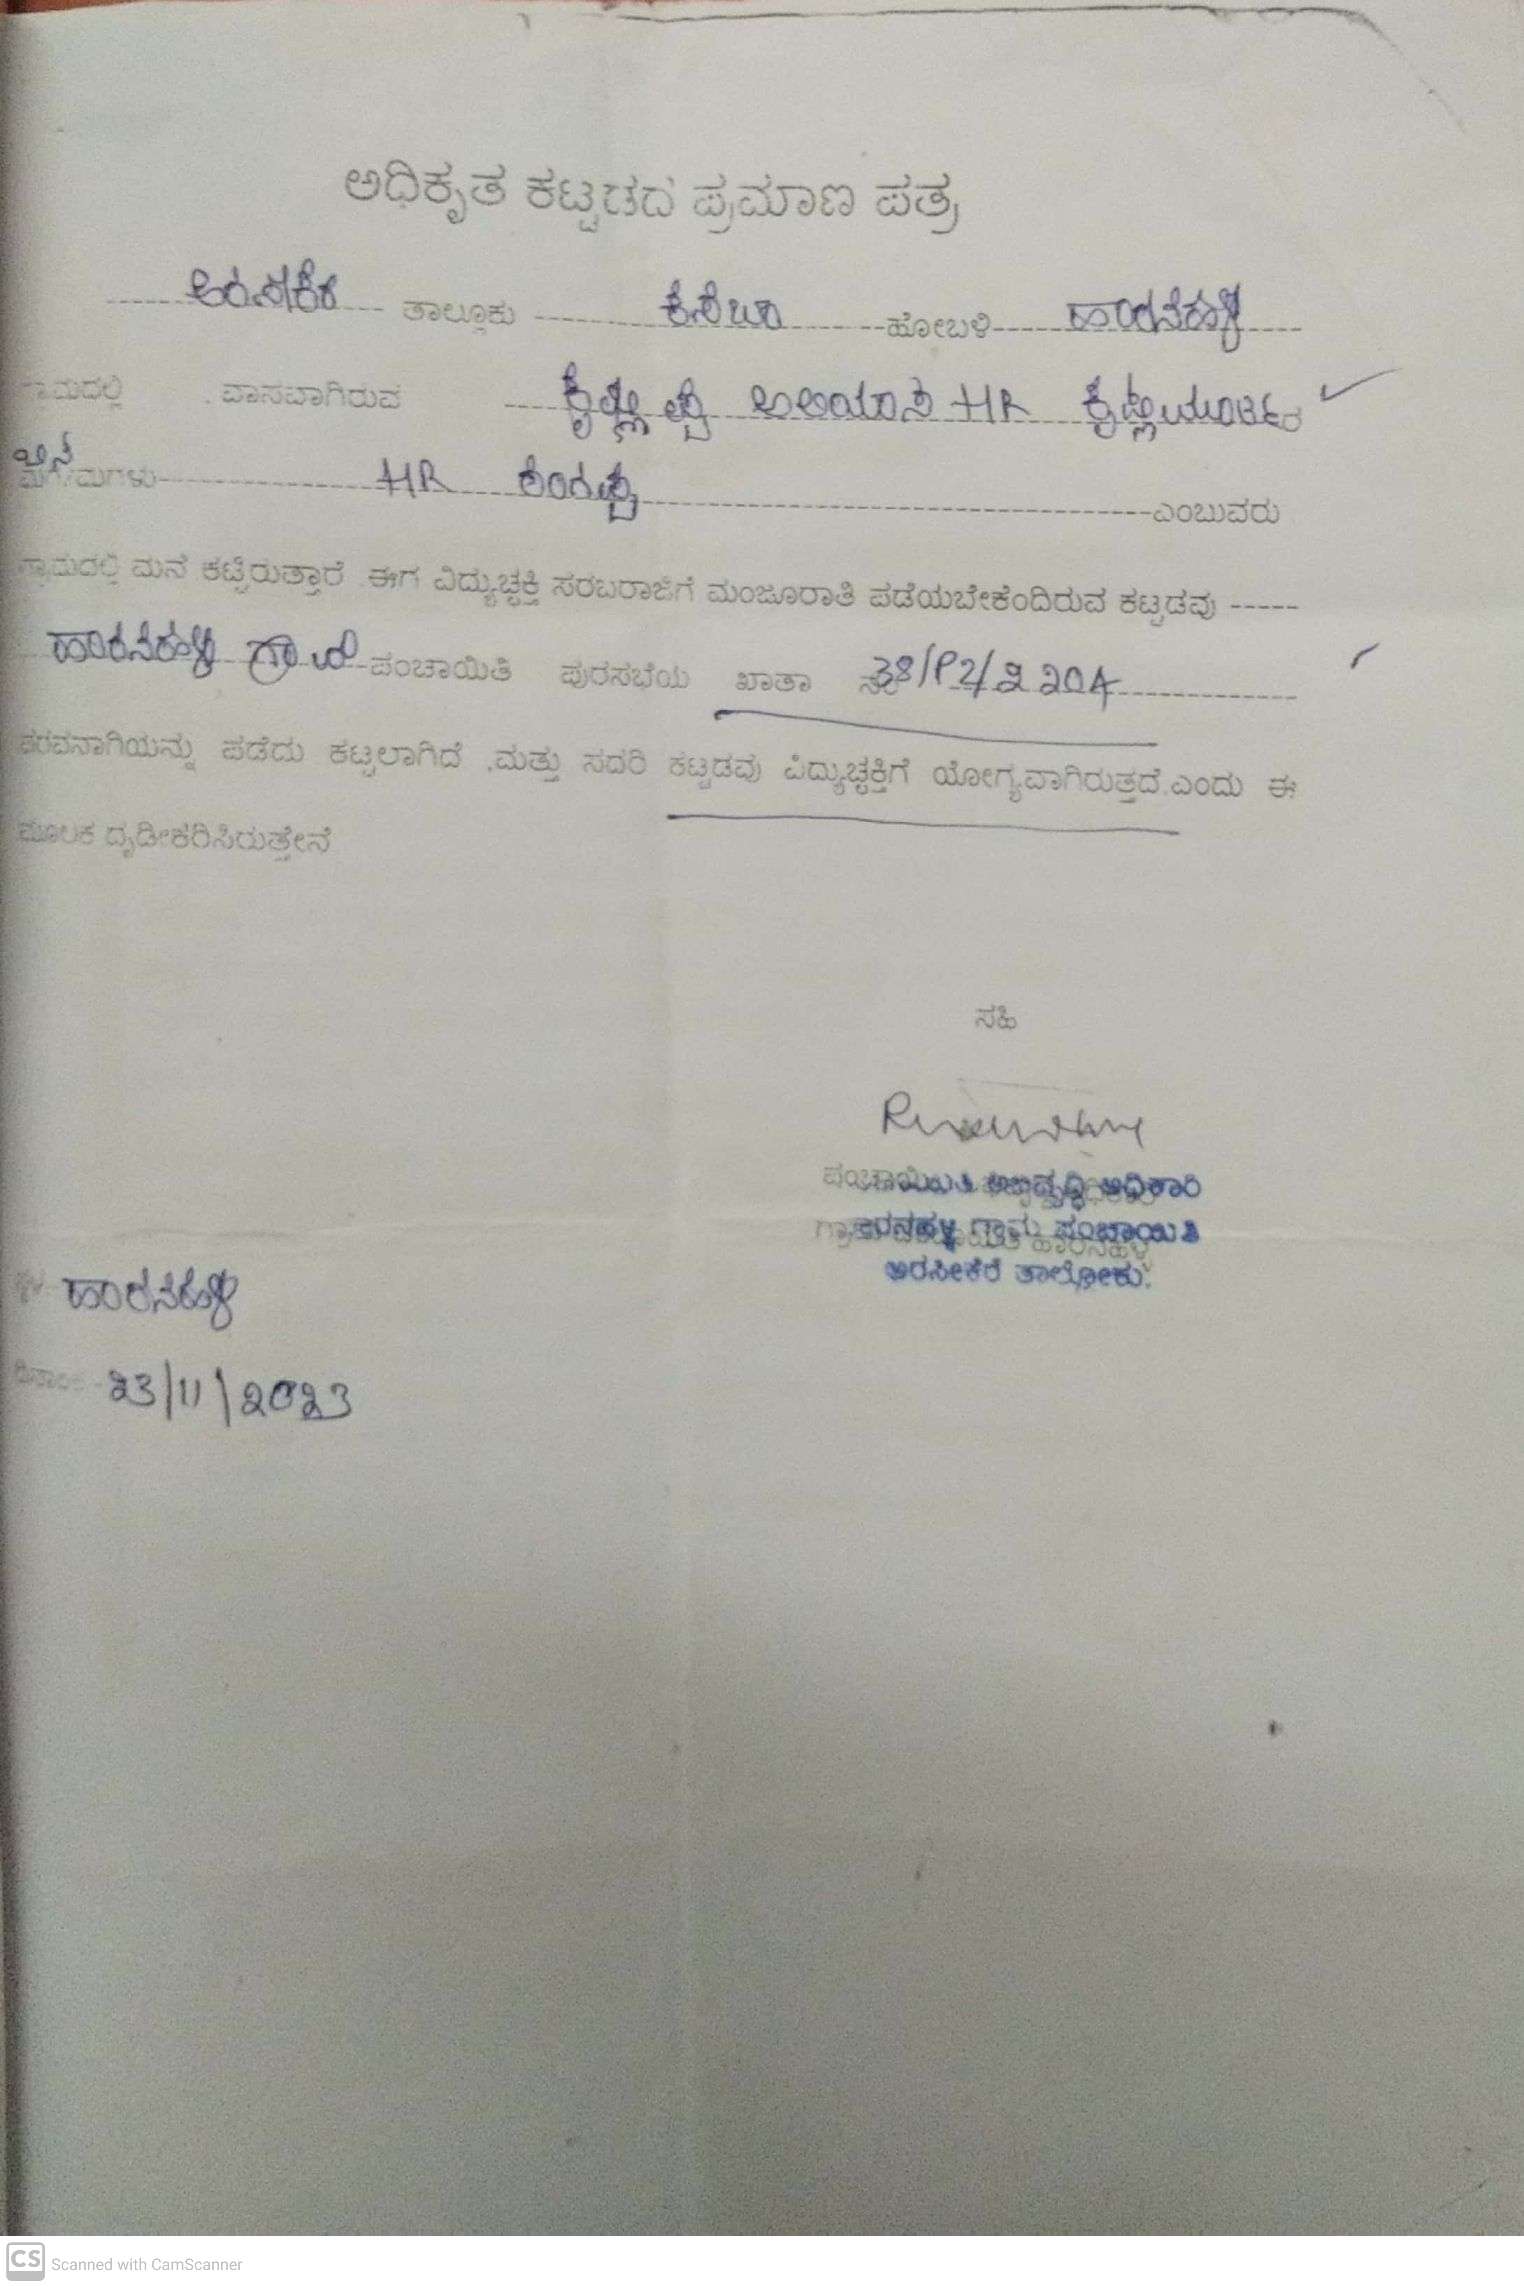 ಅಧಿಕೃತ ಕಟ್ಟಡದ ಪ್ರಮಾಣ ಪತ್ರ
ಅರಸೀಕೆರೆ ತಾಲ್ಲೂಕು ಕಸಬಾ ಹೋಬಳಿ ಹಾರನಹಳ್ಳಿ
ಗ್ರಾಮದಲ್ಲಿ ವಾಸವಾಗಿರುವ ಕೃಷ್ಣಪ್ಪ ಅಲಿಯಾಸ್ HR ಕೃಷ್ಣಮೂರ್ತಿ
ಬಿನ್ ಮಗ/ಮಗಳು HR ರಂಗಪ್ಪ ಎಂಬುವರು
ಗ್ರಾಮದಲ್ಲಿ ಮನೆ ಕಟ್ಟಿರುತ್ತಾರೆ ಈಗ ವಿದ್ಯುಚ್ಛಕ್ತಿ ಸರಬರಾಜಿಗೆ ಮಂಜೂರಾತಿ ಪಡೆಯಬೇಕೆಂದಿರುವ ಕಟ್ಟಡವು -----
ಹಾರನಹಳ್ಳಿ ಗ್ರಾಮ ಪಂಚಾಯಿತಿ ಪುರಸಭೆಯ ಖಾತಾ ನಂ 38/P2/2204
ಪರವಾನಗಿಯನ್ನು ಪಡೆದು ಕಟ್ಟಲಾಗಿದೆ .ಮತ್ತು ಸದರಿ ಕಟ್ಟಡವು ವಿದ್ಯುಚ್ಛಕ್ತಿಗೆ ಯೋಗ್ಯವಾಗಿರುತ್ತದೆ.ಎಂದು ಈ
ಮೂಲಕ ದೃಡೀಕರಿಸಿರುತ್ತೇನೆ
ಸಹಿ
ಪಂಚಾಯಿತಿ ಅಭಿವೃದ್ಧಿ ಅಧಿಕಾರಿ
ಹಾರನಹಳ್ಳಿ ಗ್ರಾಮ ಪಂಚಾಯಿತಿ
ಅರಸೀಕೆರೆ ತಾಲ್ಲೋಕು.
ಹಾರನಹಳ್ಳಿ
ದಿನಾಂಕ - 23/11/2023
CS Scanned with CamScanner